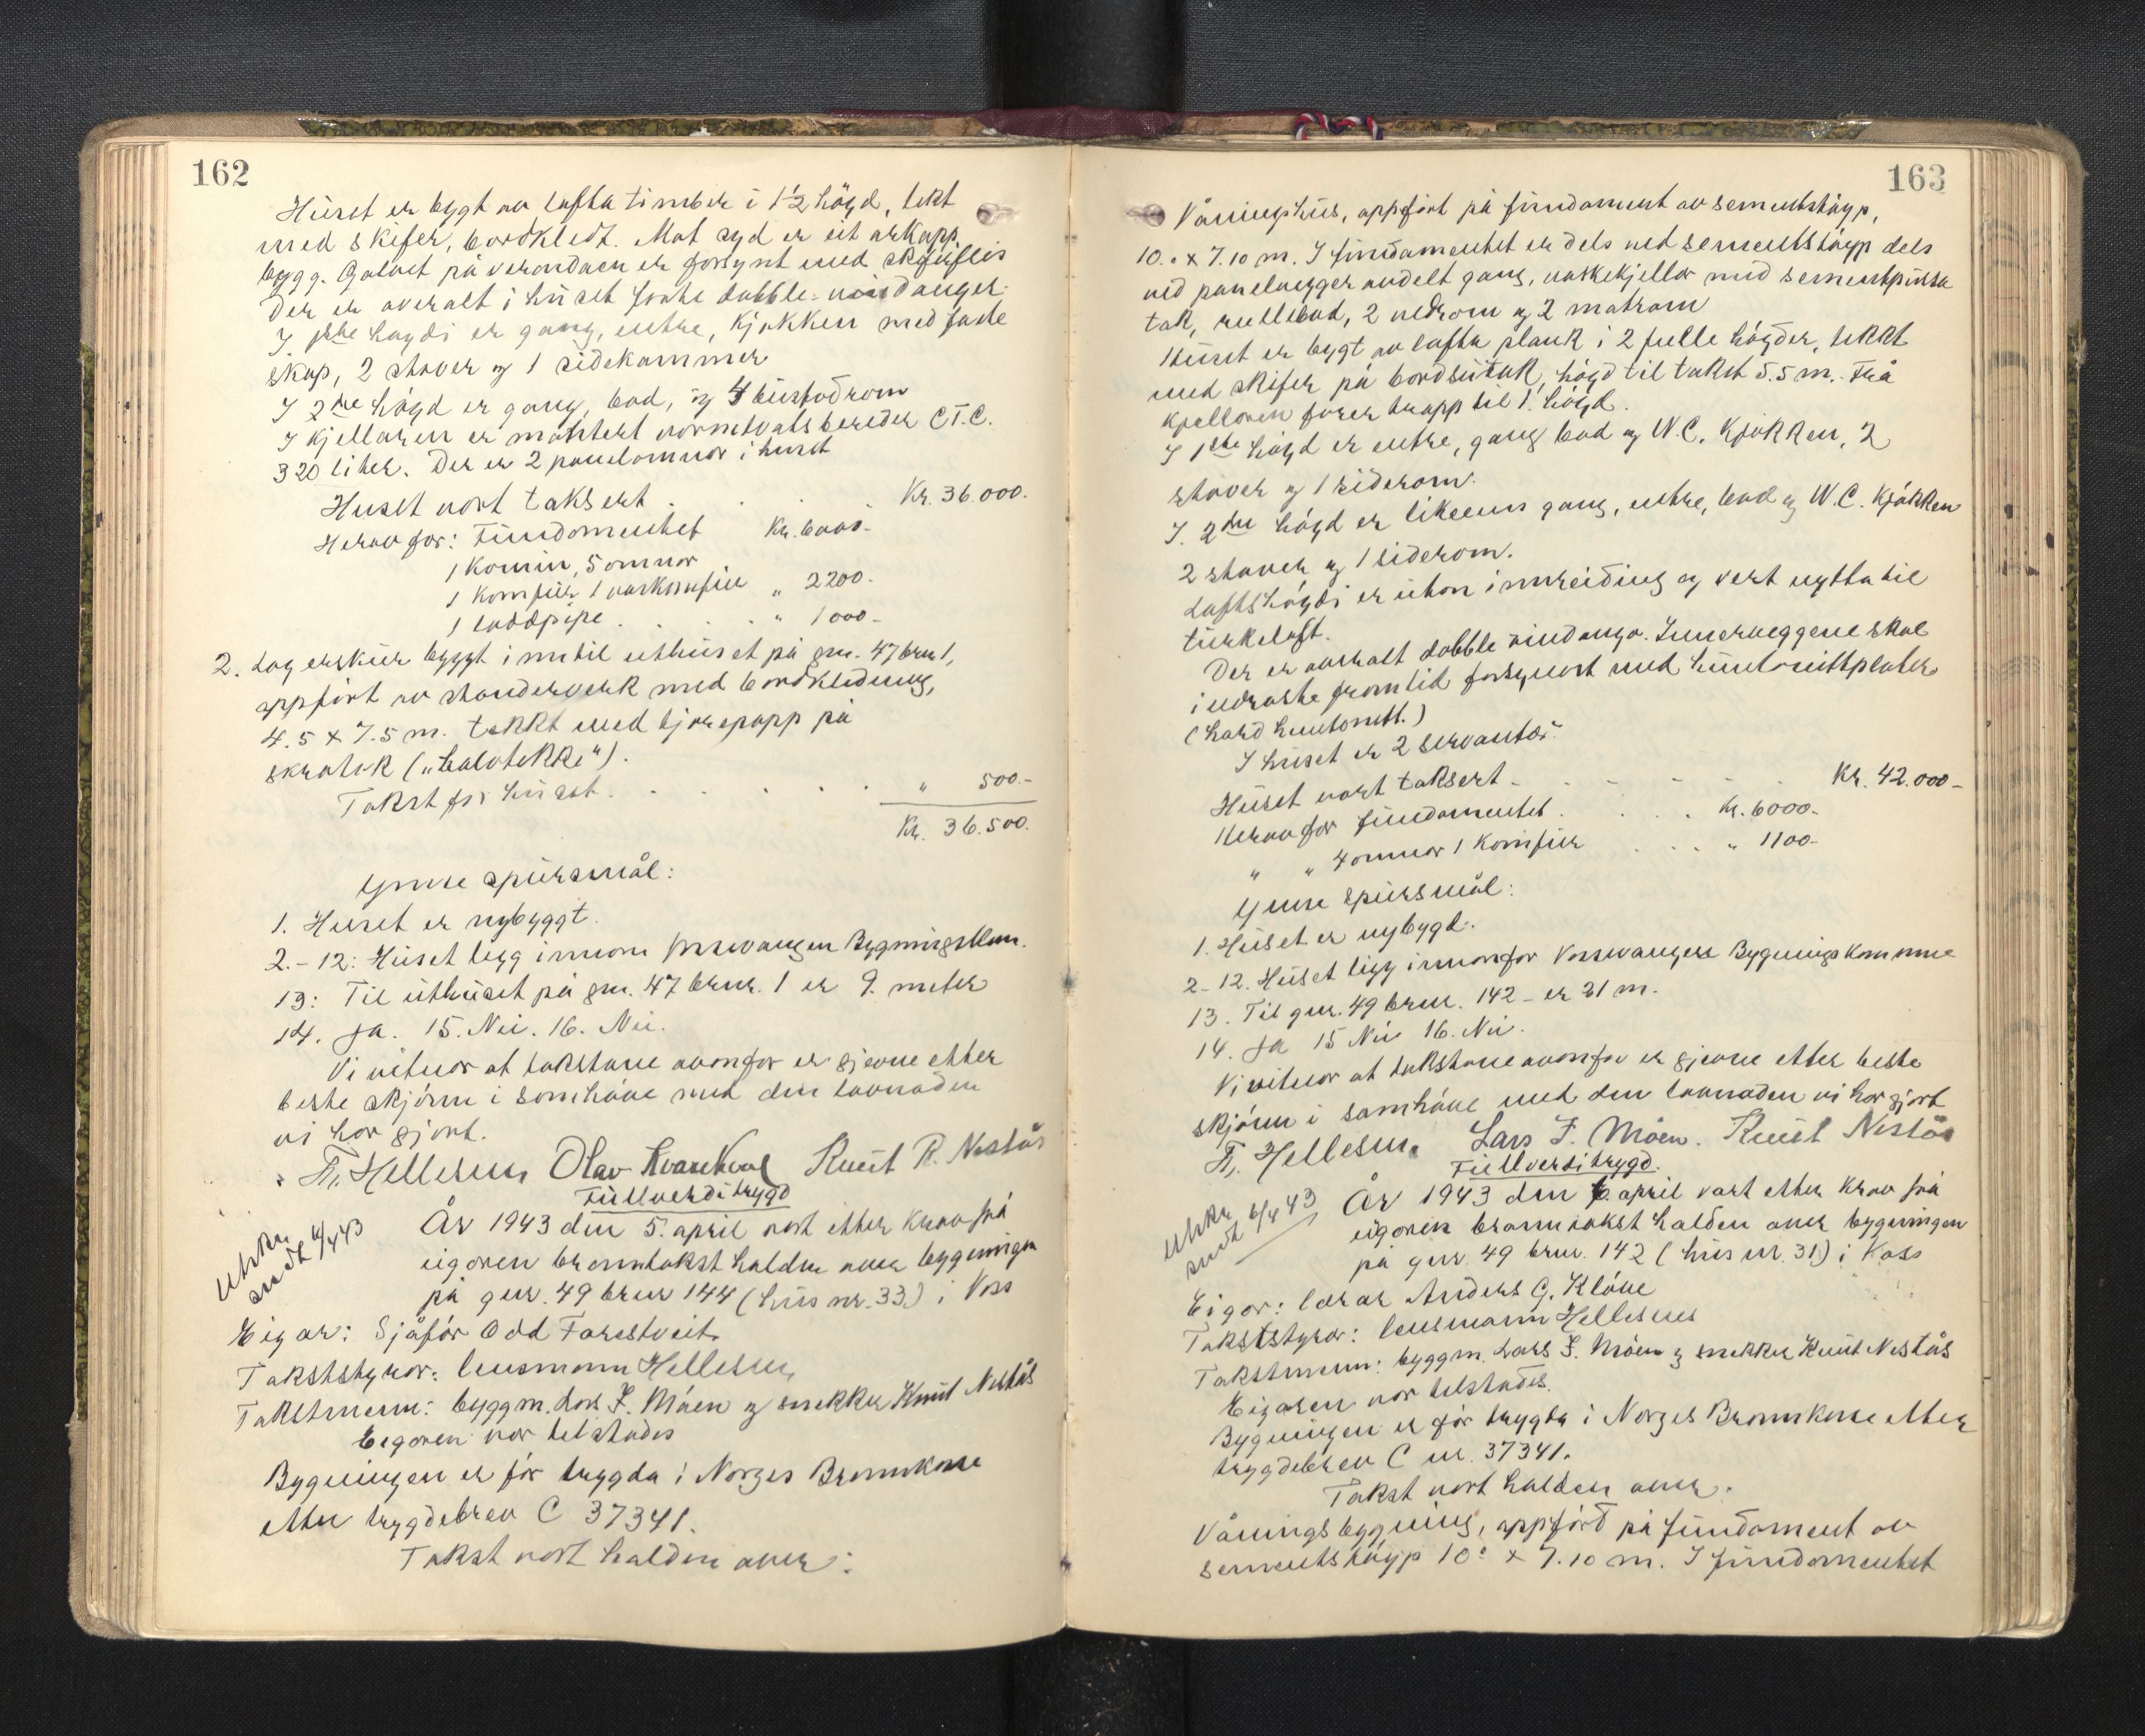 162
Huset er bygt av lafta timber i 1½ högd, tekt
med skifer, bordkledt. Mot syd er eit arkopp
bygg. Golvet på verondaen er forsynt med skiferflis
Der er overalt i huset faste dobble vindauger.
I 1ste høgdi er gang, entre, kjøkken med faste
skap, 2 stover og 1 sidekammer
I 2dre högd er gang, bad, og 4 bustadrom
I kjellaren er montert varmtvatsbereder C.T.C.
320 liter. Der er 2 panelomnar i huset
Huset vart taksert . . . Kr. 36.000.
Herav for: Fundamentet Kr. 6000.-
1 komin, 5 omnar
1 komfür 1 vaskomfür " 2200.-
1 luddpipe . . . " 1000.-
2. Lagerskur byggt inntil uthuset på gnr. 47 brnr 1,
uppfört av standerverk med bordkledning,
4.5 x 7.5 m. tekkt med tjørepapp på
skratak ("halvtekke").
Takst for huset . . . . . " 500.-
Kr. 36.500.
Ymse spursmål:
1. Huset er nybyggt.
2.-12: Huset ligg innom Vossevangen Bygningskom.
13: Til uthuset på gnr. 47 brnr. 1 er 9. meter
14. Ja. 15. Nei. 16. Nei.
Vi vitnar at takstane ovanfor er gjevne etter
beste skjönn i samhöve med den lovnaden
vi har gjort.
Hellesnes Olav Kvarekval Knut R. Nestås
Fullverditrygd
Utskr. sendt 6/4 43
År 1943 den 5. april vart etter krav frå
eigaren branntakst halden over bygningen
på gnr. 49 brnr 144 (hus nr. 33) i Voss
Eigar: Sjåfør Odd Farestveit
Takststyrar: lensmann Hellesnes
Takstmenn: byggm. Lars F. Möen og snekker Knut Nestås
Eigaren var tilstades
Bygningen er för trygda i Norges Brannkasse
etter trygdebrev C 37341.
Takst vart halden over:
163
Våningshus, oppfört på fundament av sementstöyp,
10.0 x 7.10 m. I fundamentet er dels ved sementstöyp dels
ved panelvegger avdelt gang, vaskekjellar med sementpussa
tak, rullebad, 2 vedrom og 2 matrom
Huset er bygt av lafta plank i 2 fulle högder, tekkt
med skifer på bordsutak, högd til takst 5.5 m. Frå
kjellaren fører trapp til 1. högd.
I 1ste högd er entre, gang bad og W.C. kjökken, 2
stover og 1 siderom.
I. 2dre högd er likeens gang, entre, bad og W.C. kjökken
2 stover og 1 siderom.
Loftshögdi er utan innreiding og vert nytta til
turkeloft.
Der er overalt dobble vindauga. Innerveggene skal
i næraste framtid forsynast med huntonittplater
(hard huntonitt.)
I huset er 2 servantar.
Huset vart taksert . . . . . . Kr. 42.000-
Herav for fundamentet . . . . Kr. 6000.-
" " 4 omnar 1 komfür . . . . " 1100-
Ymse spursmål:
1. Huset er nybygd.
2-12. Huset ligg innanfor Vossevangens Bygningskommune
13. Til gnr. 49 brnr. 142 - er 21 m.
14. Ja 15 Nei 16. Nei.
Vi vitnar at takstane ovanfor er gjevne etter beste
skjönn i samhöve med den lovnaden vi har gjort
Hellesnes Lars F. Möen. Knut Nestås
Fullverditrygd.
Utskr. sendt 6/4 43
År 1943 den 6. april vart etter krav frå
eigaren branntakst halden over bygningen
på gnr. 49 brnr. 142 (hus nr. 31) i Voss
Eigar: lærar Anders G. Klöve
Takststyrar: lensmann Hellesnes
Takstmenn: byggm. Lars F. Möen og snekker Knut Nestås
Eigaren var tilstades.
Bygningen er för trygda i Norges Brannkasse etter
trygdebrev C nr. 37341.
Takst vart halden over.
Våningsbygning, oppförd på fundament av
sementstöyp 10.0 x 7.10 m. I fundamentet